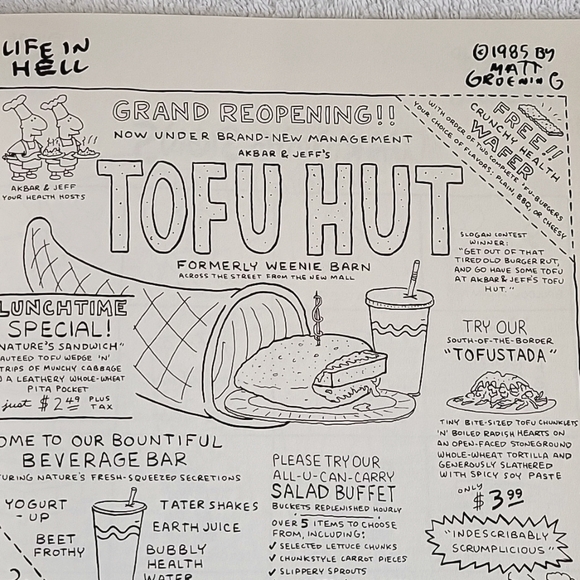 LIFE IN
HELL
©1985 BY
MATT
GROENING
GRAND REOPENING!!
NOW UNDER BRAND-NEW MANAGEMENT
AKBAR & JEFF'S
TOFU HUT
FORMERLY WEENIE BARN
ACROSS THE STREET FROM THE NEW MALL
AKBAR & JEFF
YOUR HEALTH HOSTS
FREE!!
CRUNCHY HEALTH
WAFER
WITH ORDER OF TWO COMPLETE 'FU-BURGERS
YOUR CHOICE OF FLAVORS: PLAIN, BBQ, OR CHEESY
SLOGAN CONTEST
WINNER:
"GET OUT OF THAT
TIRED OLD BURGER RUT,
AND GO HAVE SOME TOFU
AT AKBAR & JEFF'S TOFU
HUT."
LUNCHTIME
SPECIAL!
NATURE'S SANDWICH"
AUTEED TOFU WEDGE 'N'
TRIPS OF MUNCHY CABBAGE
A LEATHERY WHOLE-WHEAT
PITA POCKET
just $2.49 PLUS
TAX
TRY OUR
SOUTH-OF-THE-BORDER
"TOFUSTADA"
TINY BITE-SIZED TOFU CHUNKLETS
'N' BOILED RADISH HEARTS ON
AN OPEN-FACED STONEGROUND
WHOLE-WHEAT TORTILLA AND
GENEROUSLY SLATHERED
WITH SPICY SOY PASTE
ONLY
$3.99
"INDESCRIBABLY
SCRUMPLICIOUS"
OME TO OUR BOUNTIFUL
BEVERAGE BAR
TURING NATURE'S FRESH-SQUEEZED SECRETIONS
YOGURT
-UP
BEET
FROTHY
TATER SHAKES
EARTH JUICE
BUBBLY
HEALTH
WATER
PLEASE TRY OUR
ALL-U-CAN-CARRY
SALAD BUFFET
BUCKETS REPLENISHED HOURLY
OVER 5 ITEMS TO CHOOSE
FROM, INCLUDING:
✓ SELECTED LETTUCE CHUNKS
✓ CHUNKSTYLE CARROT PIECES
✓ SLIPPERY SPROUTS